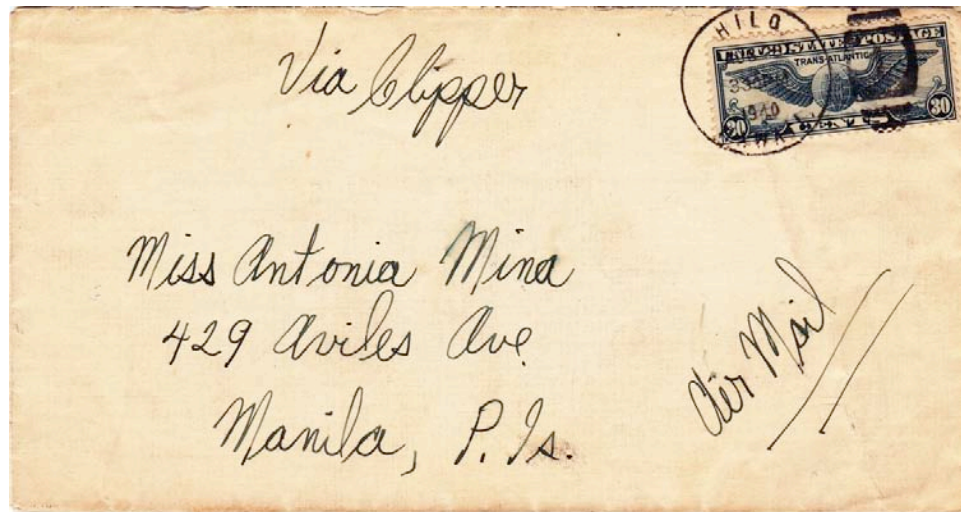 Via Clipper
HILO
1940
UNITED STATES POSTAGE
TRANS-ATLANTIC
30 30
Miss Antonia Mina
429 Aviles Ave
Manila, P. Is.
Air Mail